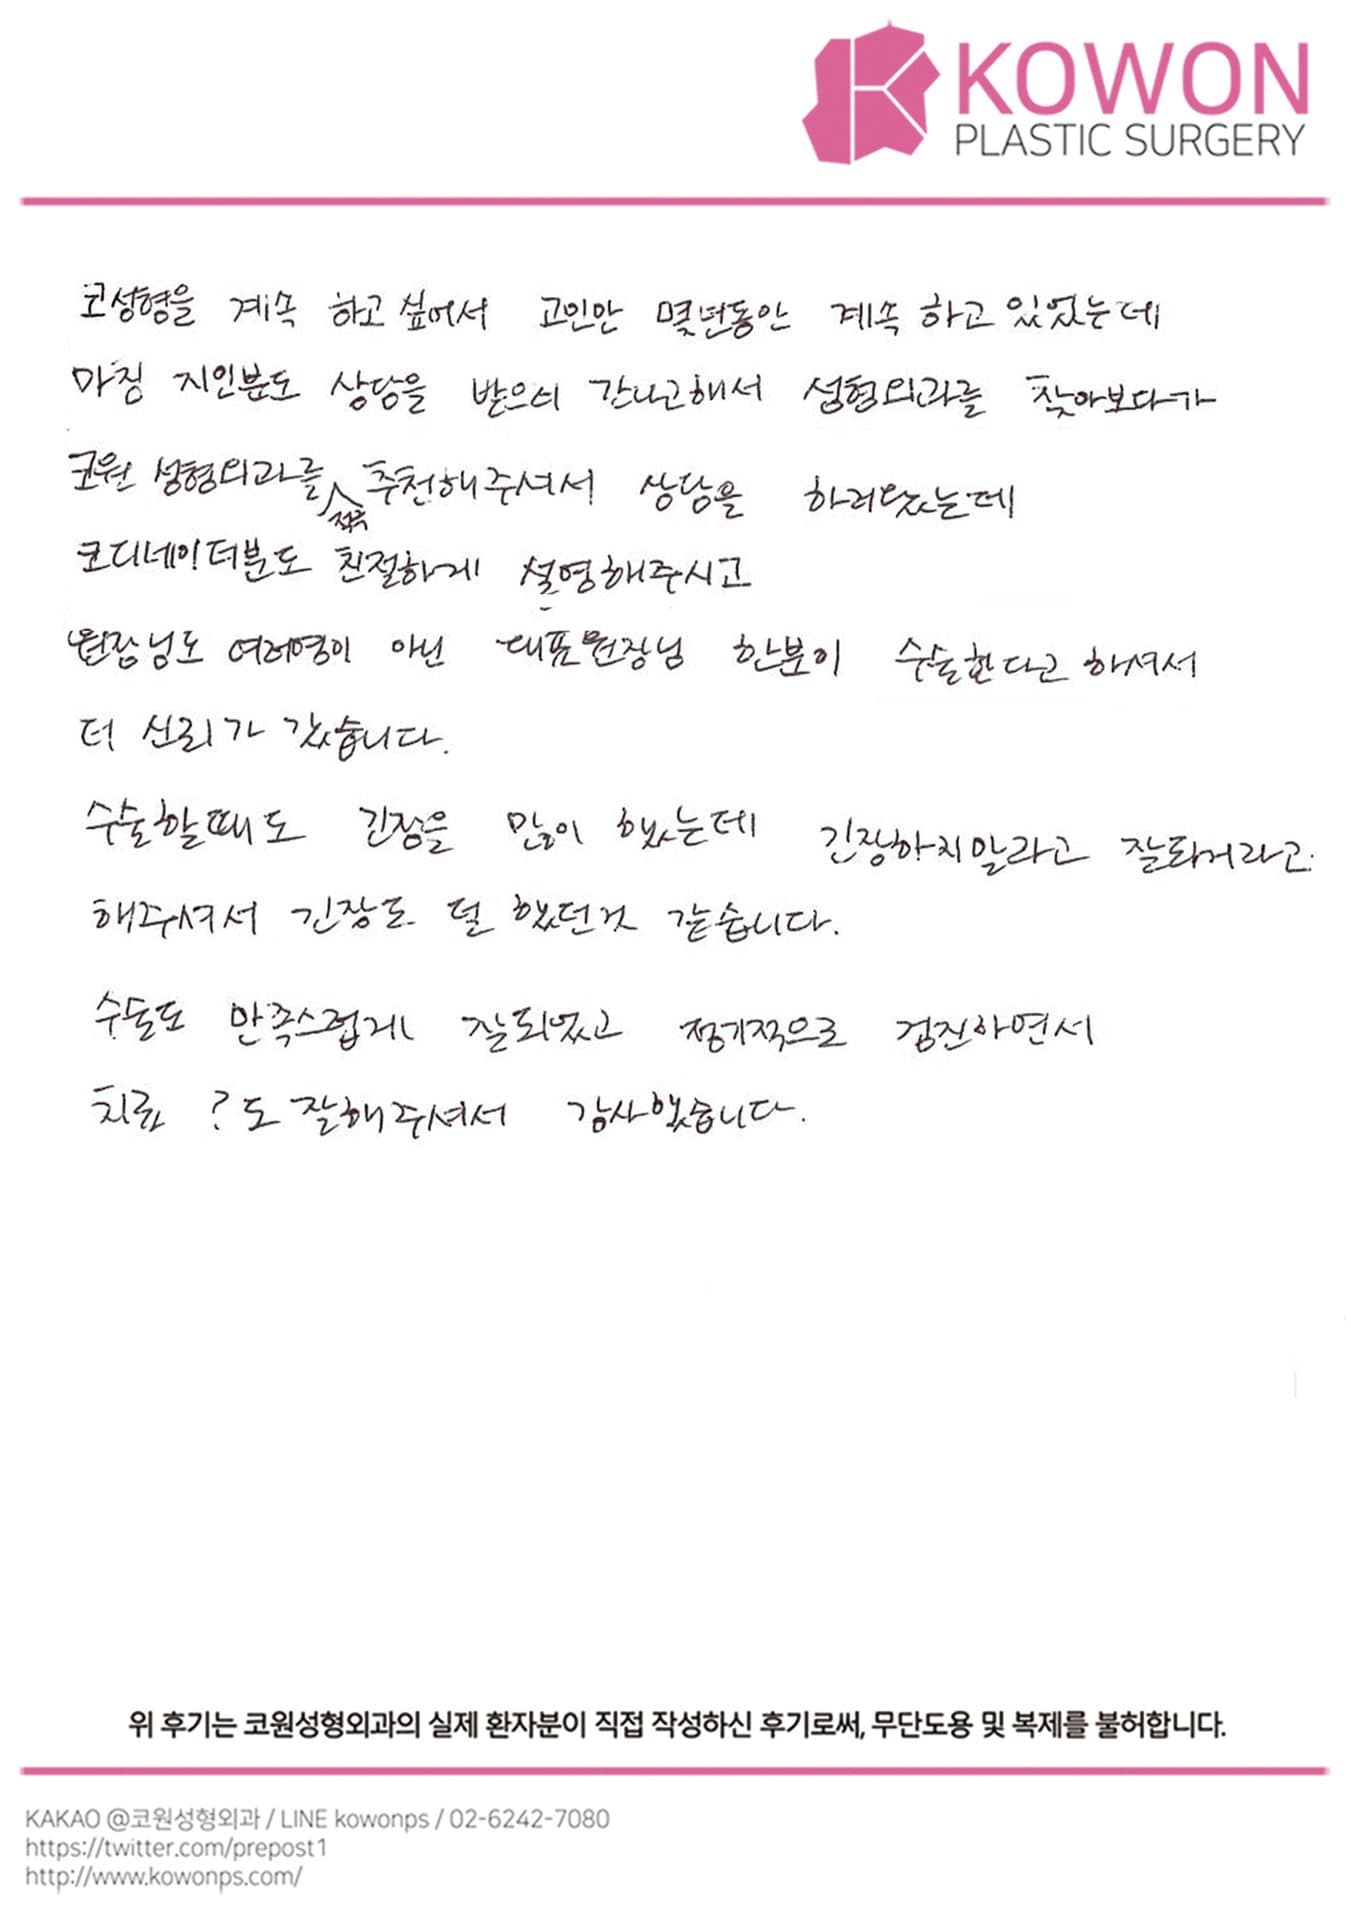 KOWON
PLASTIC SURGERY
코성형을 계속 하고싶어서 고민만 몇년동안 계속 하고 있었는데
마침 지인분도 상담을 받으러 간다고해서 성형외과를 찾아보다가
코원 성형외과를 적극 추천해주셔서 상담을 하러왔는데
코디네이터분도 친절하게 설명해주시고
원장님도 여러명이 아닌 대표원장님 한분이 수술한다고 하셔서
더 신뢰가 갔습니다.
수술할때도 긴장을 많이 했는데 긴장하지말라고 잘되거라고
해주셔서 긴장도 덜 했던것 같습니다.
수술도 만족스럽게 잘되었고 정기적으로 검진하면서
치료 ?도 잘해주셔서 감사했습니다.
위 후기는 코원성형외과의 실제 환자분이 직접 작성하신 후기로써, 무단도용 및 복제를 불허합니다.
KAKAO @코원성형외과 / LINE kowonps / 02-6242-7080
https://twitter.com/prepost1
http://www.kowonps.com/